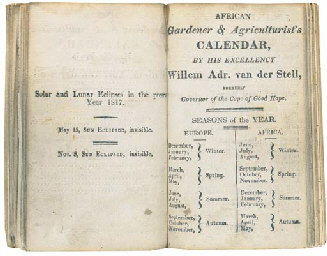 Solar and Lunar Eclipses in the present
Year 1817.
May 15, Sun Eclipsed, invisible.
Nov. 9, Sun Eclipsed, invisible.
AFRICAN
Gardener & Agriculturist's
CALENDAR,
BY HIS EXCELLENCY
Willem Adr. van der Stell,
FORMERLY
Governor of the Cape of Good Hope.
SEASONS of the YEAR.
EUROPE. AFRICA.
December, June,
January, Winter. July, Winter.
February, August,
March, September,
April, Spring. October, Spring.
May, November,
June, December,
July, Summer. January, Summer.
August, February,
September, March,
October, Autumn. April, Autumn.
November, May,